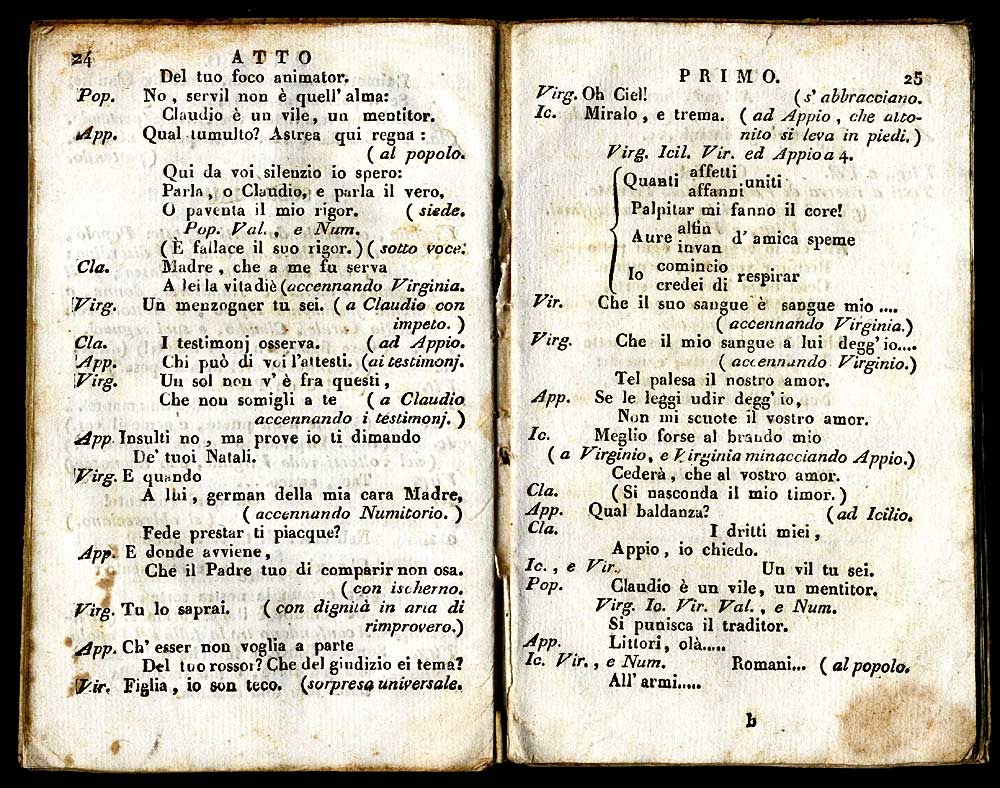 24 ATTO
Del tuo foco animator.
Pop. No, servil non è quell' alma:
Claudio è un vile, un mentitor.
App. Qual tumulto? Astrea qui regna:
(al popolo.
Qui da voi silenzio io spero:
Parla, o Claudio, e parla il vero,
O paventa il mio rigor. (siede.
Pop. Val., e Num.
(È fallace il suo rigor.) (sotto voce.
Cla. Madre, che a me fu serva
A lei la vita diè (accennando Virginia.
Virg. Un menzogner tu sei. (a Claudio con
impeto.)
Cla. I testimonj osserva. (ad Appio.
App. Chi può di voi l'attesti. (ai testimonj.
Virg. Un sol non v' è fra questi,
Che non somigli a te (a Claudio
accennando i testimonj.)
App. Insulti no, ma prove io ti dimando
De' tuoi Natali.
Virg. E quando
A lui, german della mia cara Madre,
(accennando Numitorio.)
Fede prestar ti piacque?
App. E donde avviene,
Che il Padre tuo di comparir non osa.
(con ischerno.
Virg. Tu lo saprai. (con dignità in aria di
rimprovero.)
App. Ch' esser non voglia a parte
Del tuo rossor? Che del giudizio ei tema?
Vir. Figlia, io son teco. (sorpresa universale.
PRIMO. 25
Virg. Oh Ciel! (s' abbracciano.
Ic. Miralo, e trema. (ad Appio, che atto-
nito si leva in piedi.)
Virg. Icil. Vir. ed Appio a 4.
Quanti affetti uniti
affanni
Palpitar mi fanno il core!
Aure alfin d' amica speme
invan
Io comincio respirar
credei di
Vir. Che il suo sangue è sangue mio ....
(accennando Virginia.)
Virg. Che il mio sangue a lui degg' io....
(accennando Virginio.)
Tel palesa il nostro amor.
App. Se le leggi udir degg' io,
Non mi scuote il vostro amor.
Ic. Meglio forse al brando mio
(a Virginio, e Virginia minacciando Appio.)
Cederà, che al vostro amor.
Cla. (Si nasconda il mio timor.)
App. Qual baldanza? (ad Icilio.
Cla. I dritti miei,
Appio, io chiedo.
Ic., e Vir. Un vil tu sei.
Pop. Claudio è un vile, un mentitor.
Virg. Ic. Vir. Val., e Num.
Si punisca il traditor.
App. Littori, olà.....
Ic. Vir., e Num. Romani... (al popolo.
All' armi.....
b